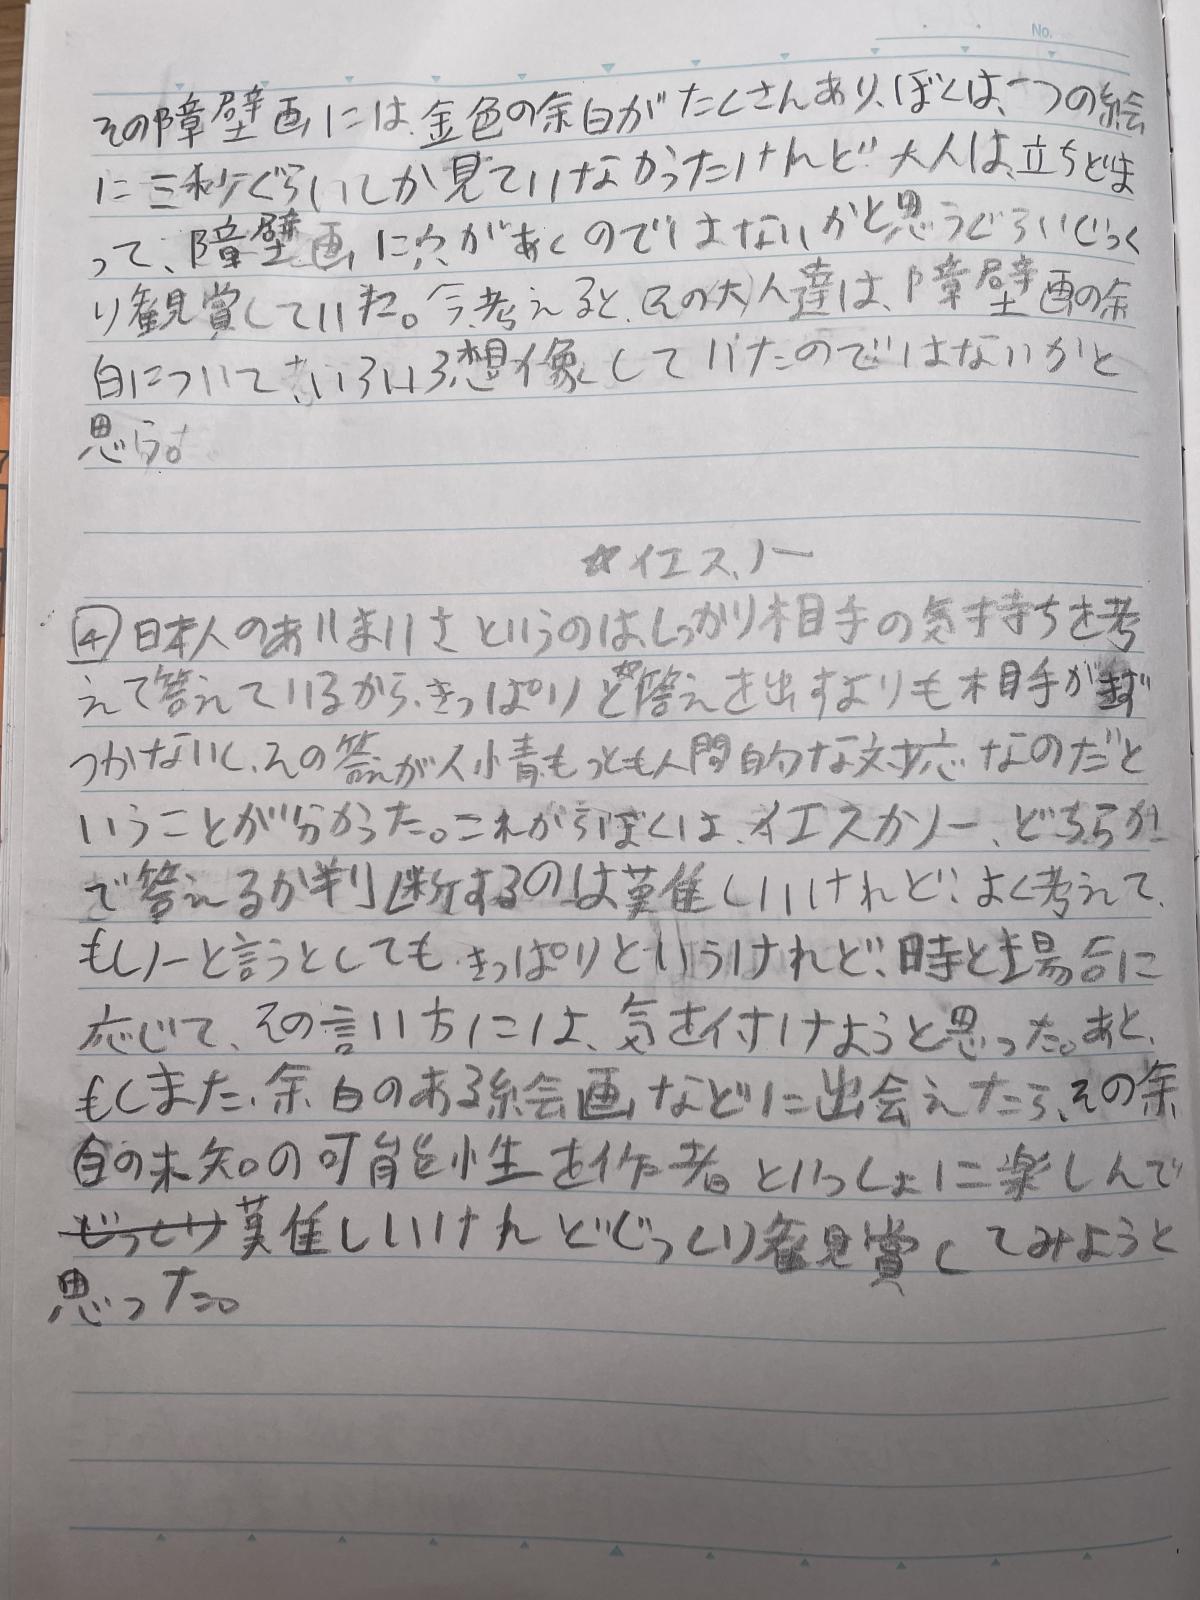 No.
その障壁画には、金色の余白がたくさんあり、ぼくは、一つの絵
に三秒ぐらいしか見ていなかったけれど、大人は、立ちどま
って、障壁画に穴があくのではないかと思うぐらいじっく
り観賞していた。今、考えると、その大人達は、障壁画の余
白について、いろいろ想像していたのではないかと
思う。
☆イエス、ノー
④日本人のあいまいさというのは、しっかり相手の気持ちを考
えて答えているから、きっぱりと☆答えを出すよりも相手がきず
つかないし、その答えが人情もっとも人間的な対応なのだと
いうことが分かった。これからぼくは、イエスかノー、どちらか
で答えるか判断するのは難しいけれど、よく考えて、
もしノーと言うとしても、きっぱりというけれど、時と場合に
応じて、その言い方には、気を付けようと思った。あと、
もしまた、余白のある絵画などに出会えたら、その余
白の未知の可能性を作者といっしょに楽しんで
じっくり難しいけれどじっくり観賞してみようと
思った。